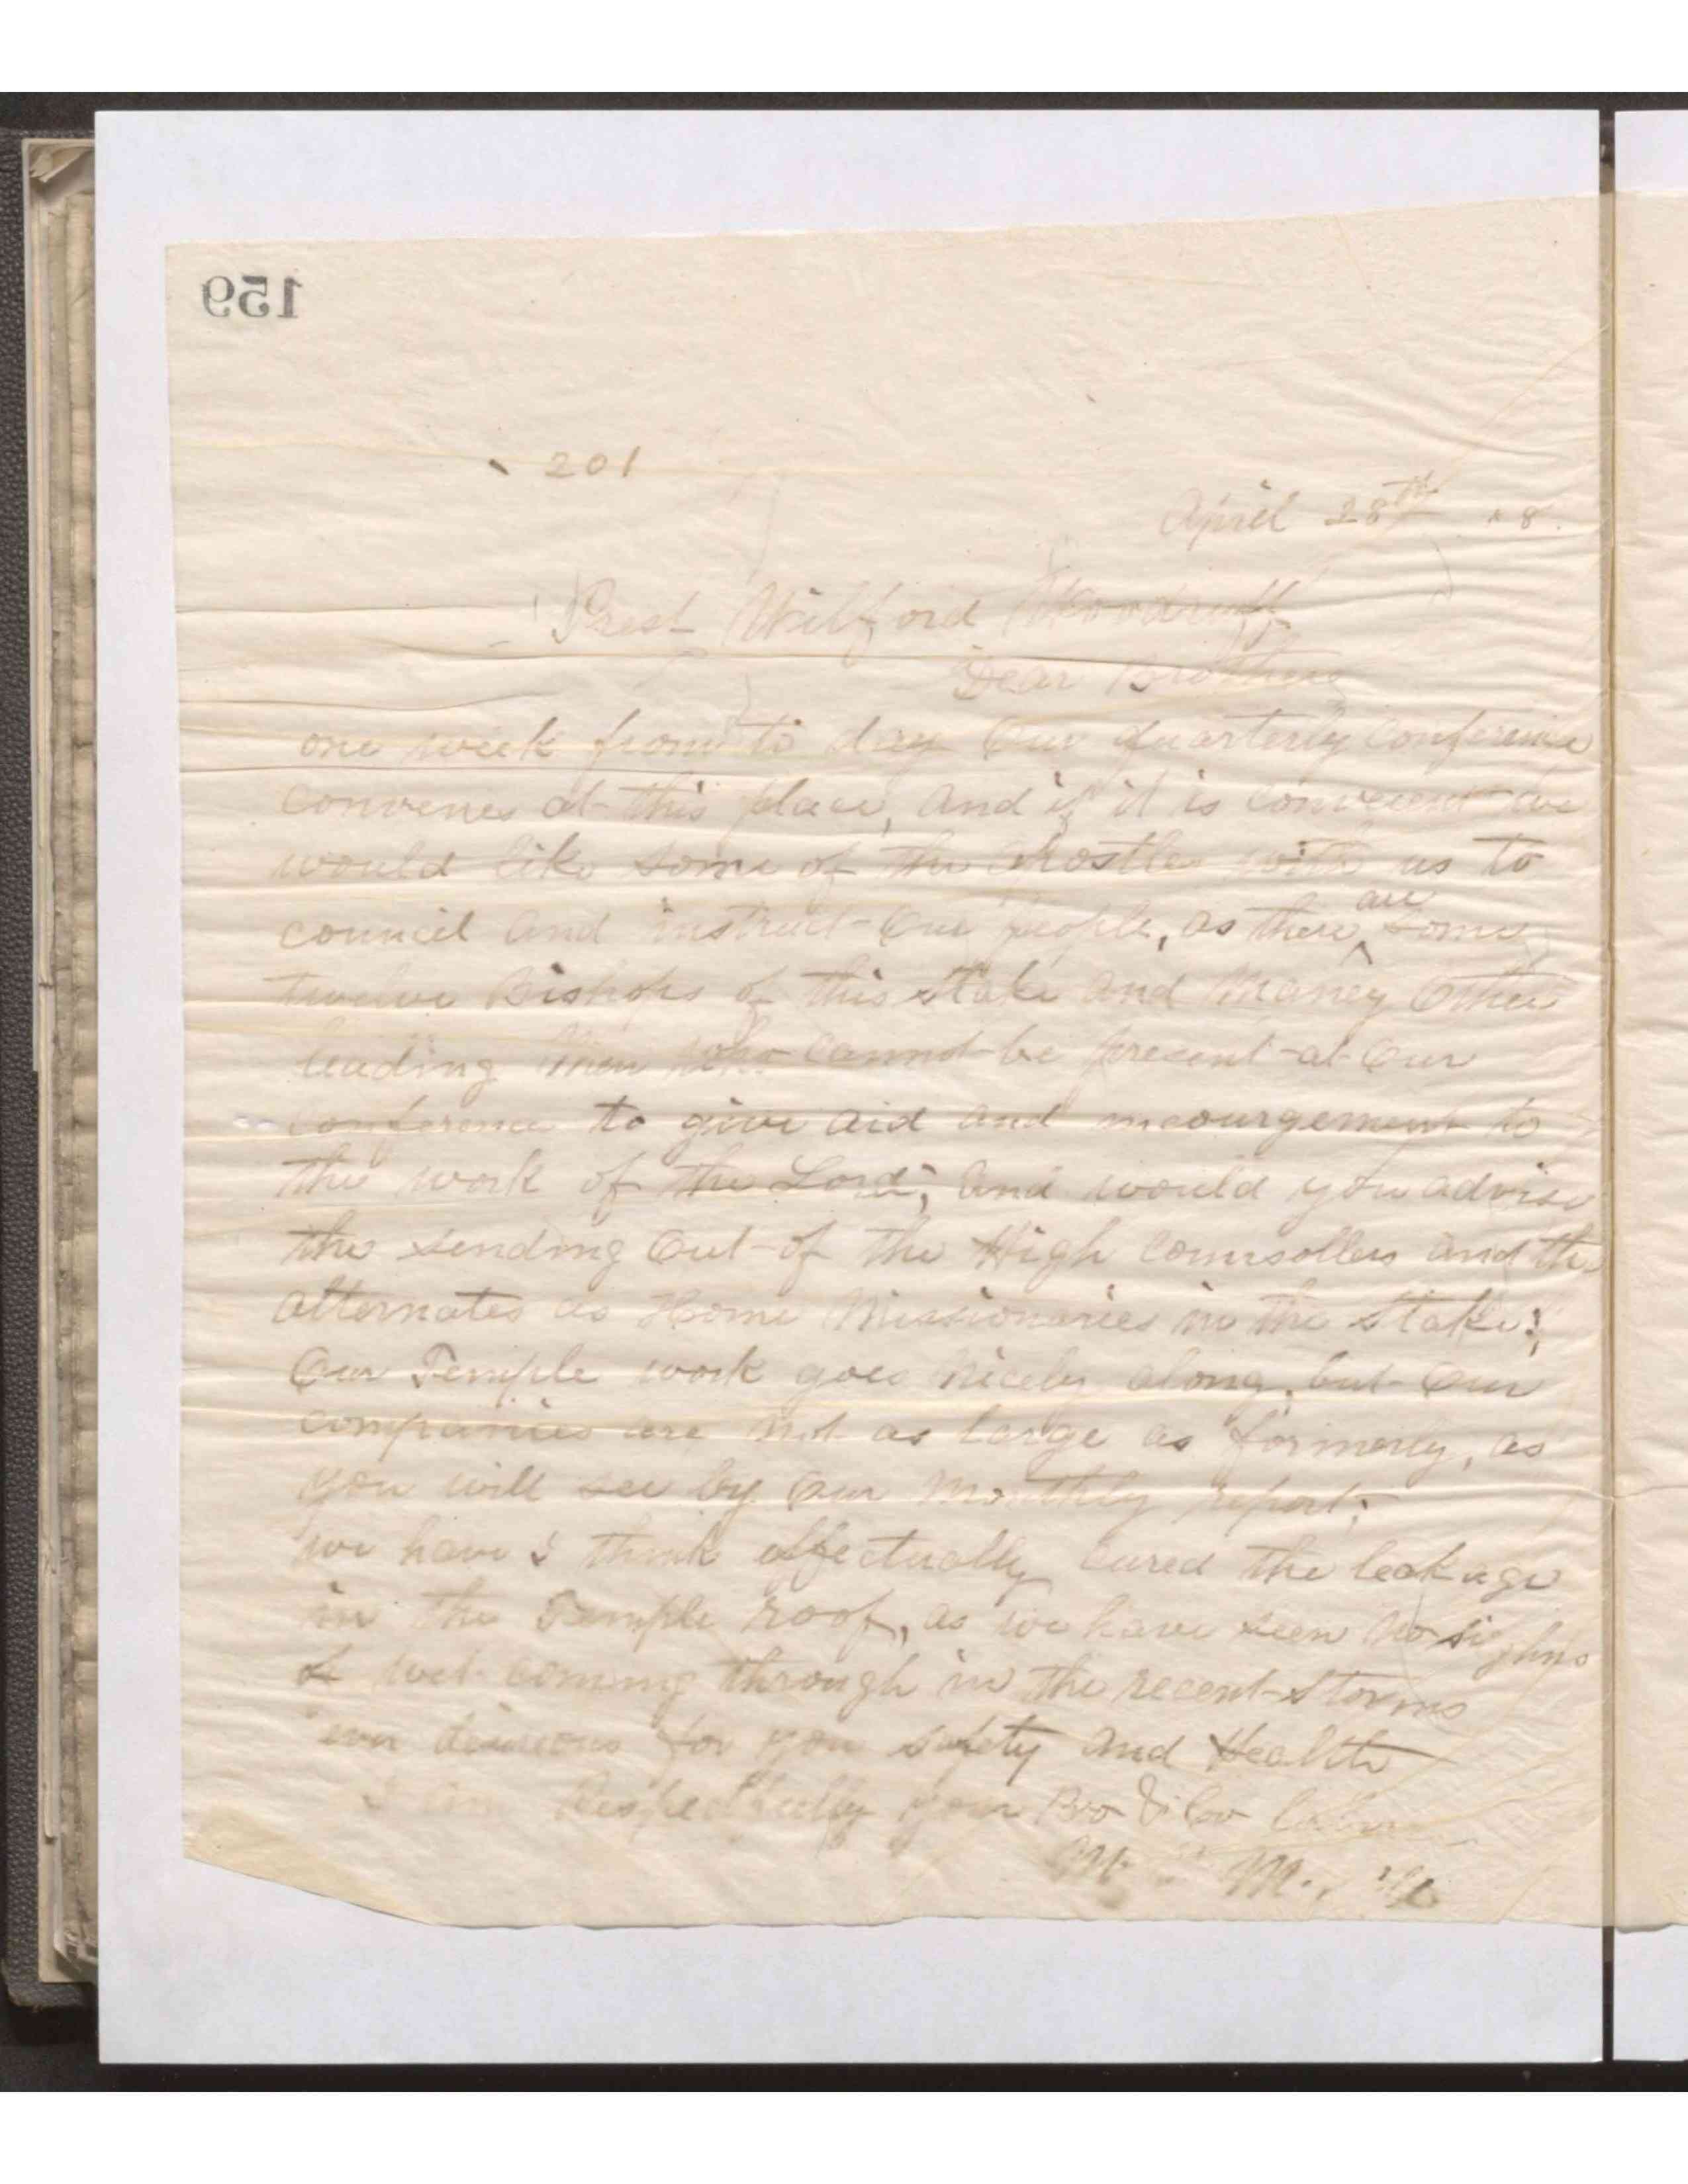 159
201
April 28th 8.
Prest Wilford Woodruff
Dear Brother
one week from to day Our quarterly conference
convenes at this place, and if it is convenient we
would like some of the Apostles with us to
council and instruct Our people, as there are some
twelve Bishops of this Stake and Maney Other
leading Men who cannot be present at Our
conference to give aid and incourgement to
the work of the Lord; and would you advise
the sending Out of the High Counsollers and the
alternates as Home Missionaries in the Stake;
Our Temple work goes Nicely along, but Our
companies are not as large as formerly, as
you will see by Our Monthly report;
we have I think effectually cured the leakage
in the Temple roof, as we have seen no sighns
of wet comming through in the recent storms
ever for your safety and Health
I am Respectfully your Bro & Co